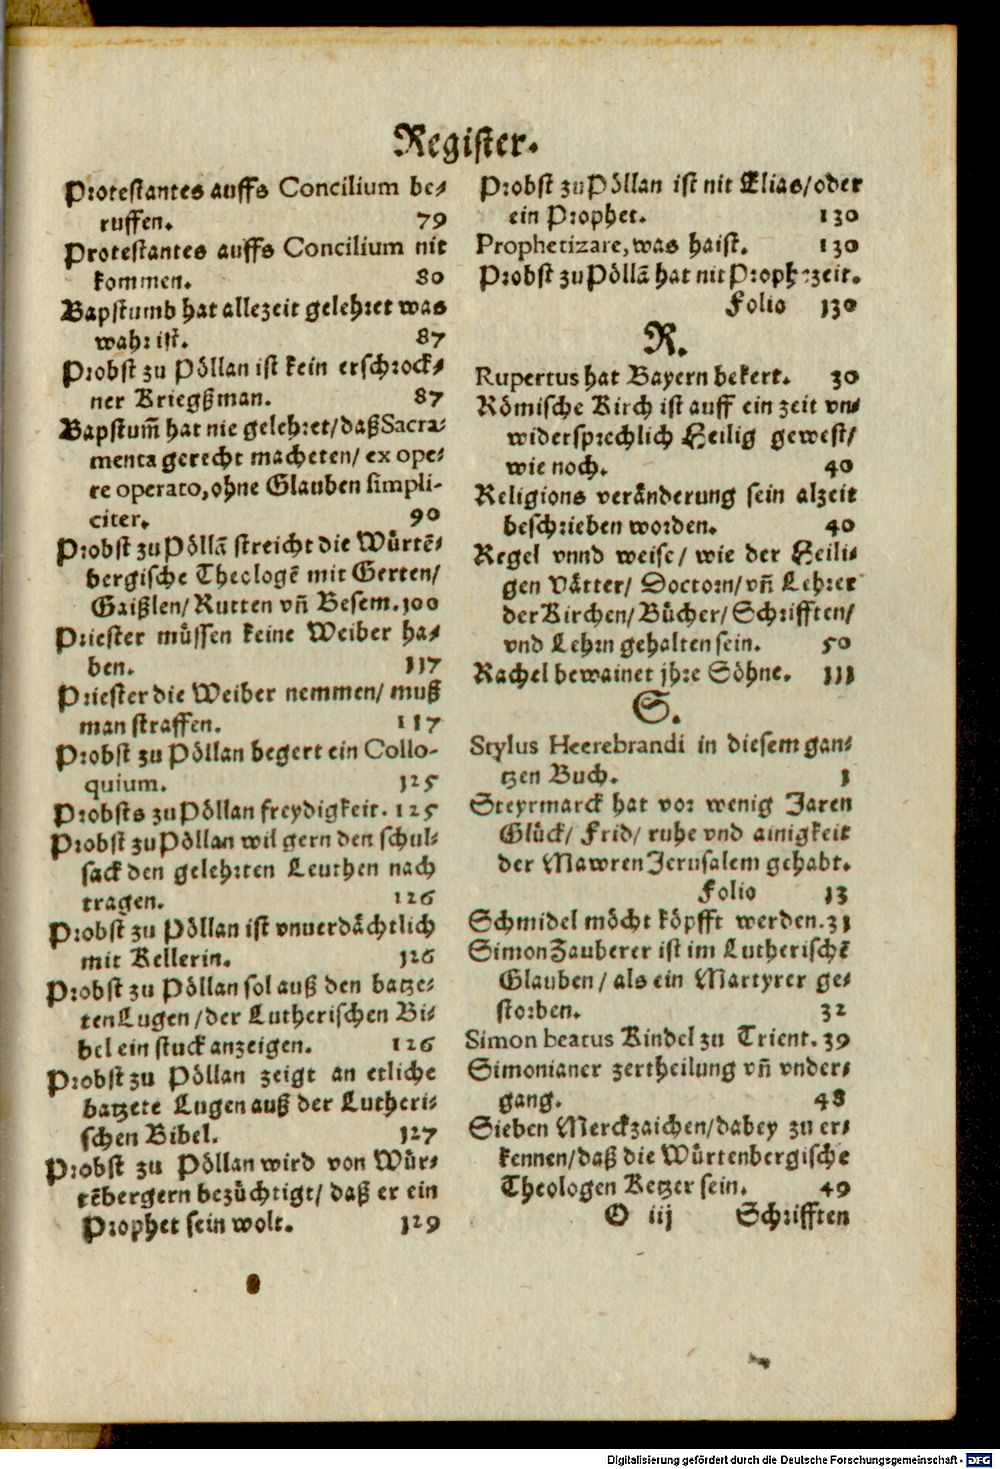 Register.
Protestantes auffs Concilium be⸗
ruffen. 79
Protestantes auffs Concilium nit
kommen. 80
Bapstumb hat allezeit gelehret was
wahr ist. 87
Probst zu Pöllan ist kein erschrock⸗
ner Kriegßman. 87
Bapstum̃ hat nie gelehret/ daß Sacra⸗
menta gerecht macheten/ ex ope⸗
re operato, ohne Glauben simpli⸗
citer. 90
Probst zu Pöllã streicht die Würtẽ⸗
bergische Theologẽ mit Gerten/
Gaißlen/ Rutten vñ Besem. 100
Priester müssen keine Weiber ha⸗
ben. 117
Priester die Weiber nemmen/ muß
man straffen. 117
Probst zu Pöllan begert ein Collo⸗
quium. 125
Probsts zu Pöllan freydigkeit. 125
Probst zu Pöllan wil gern den schul⸗
sack den gelehrten Leuthen nach
tragen. 126
Probst zu Pöllan ist vnuerdächtlich
mit Kellerin. 126
Probst zu Pöllan sol auß den batze⸗
ten Lugen/ der Lutherischen Bi⸗
bel ein stuck anzeigen. 126
Probst zu Pöllan zeigt an etliche
batzete Lugen auß der Lutheri⸗
schen Bibel. 127
Probst zu Pöllan wird von Wür⸗
tẽbergern bezüchtigt/ daß er ein
Prophet sein wolt. 129
Probst zu Pöllan ist nit Elias/ oder
ein Prophet. 130
Prophetizare, was haist. 130
Probst zu Pöllã hat nit Prophezeit.
Folio 130
R.
Rupertus hat Bayern bekert. 30
Römische Kirch ist auff ein zeit vn⸗
widersprechlich Heilig gewest/
wie noch. 40
Religions veränderung sein alzeit
beschrieben worden. 40
Regel vnnd weise/ wie der Heili⸗
gen Vätter/ Doctorn/ vñ Lehrer
der Kirchen/ Bücher/ Schrifften/
vnd Lehrn gehalten sein. 50
Rachel bewainet jhre Söhne. 111
S.
Stylus Heerebrandi in diesem gan⸗
tzen Buch. 1
Steyrmarck hat vor wenig Jaren
Glück/ Frid/ ruhe vnd ainigkeit
der Mawren Jerusalem gehabt.
Folio 13
Schmidel möcht köpfft werden. 31
Simon Zauberer ist im Lutherischẽ
Glauben/ als ein Martyrer ge⸗
storben. 32
Simon beatus Kindel zu Trient. 39
Simonianer zertheilung vñ vnder⸗
gang. 48
Sieben Merckzaichen/ dabey zu er⸗
kennen/ daß die Würtenbergische
Theologen Ketzer sein. 49
O iij Schrifften
Digitalisierung gefördert durch die Deutsche Forschungsgemeinschaft - DFG